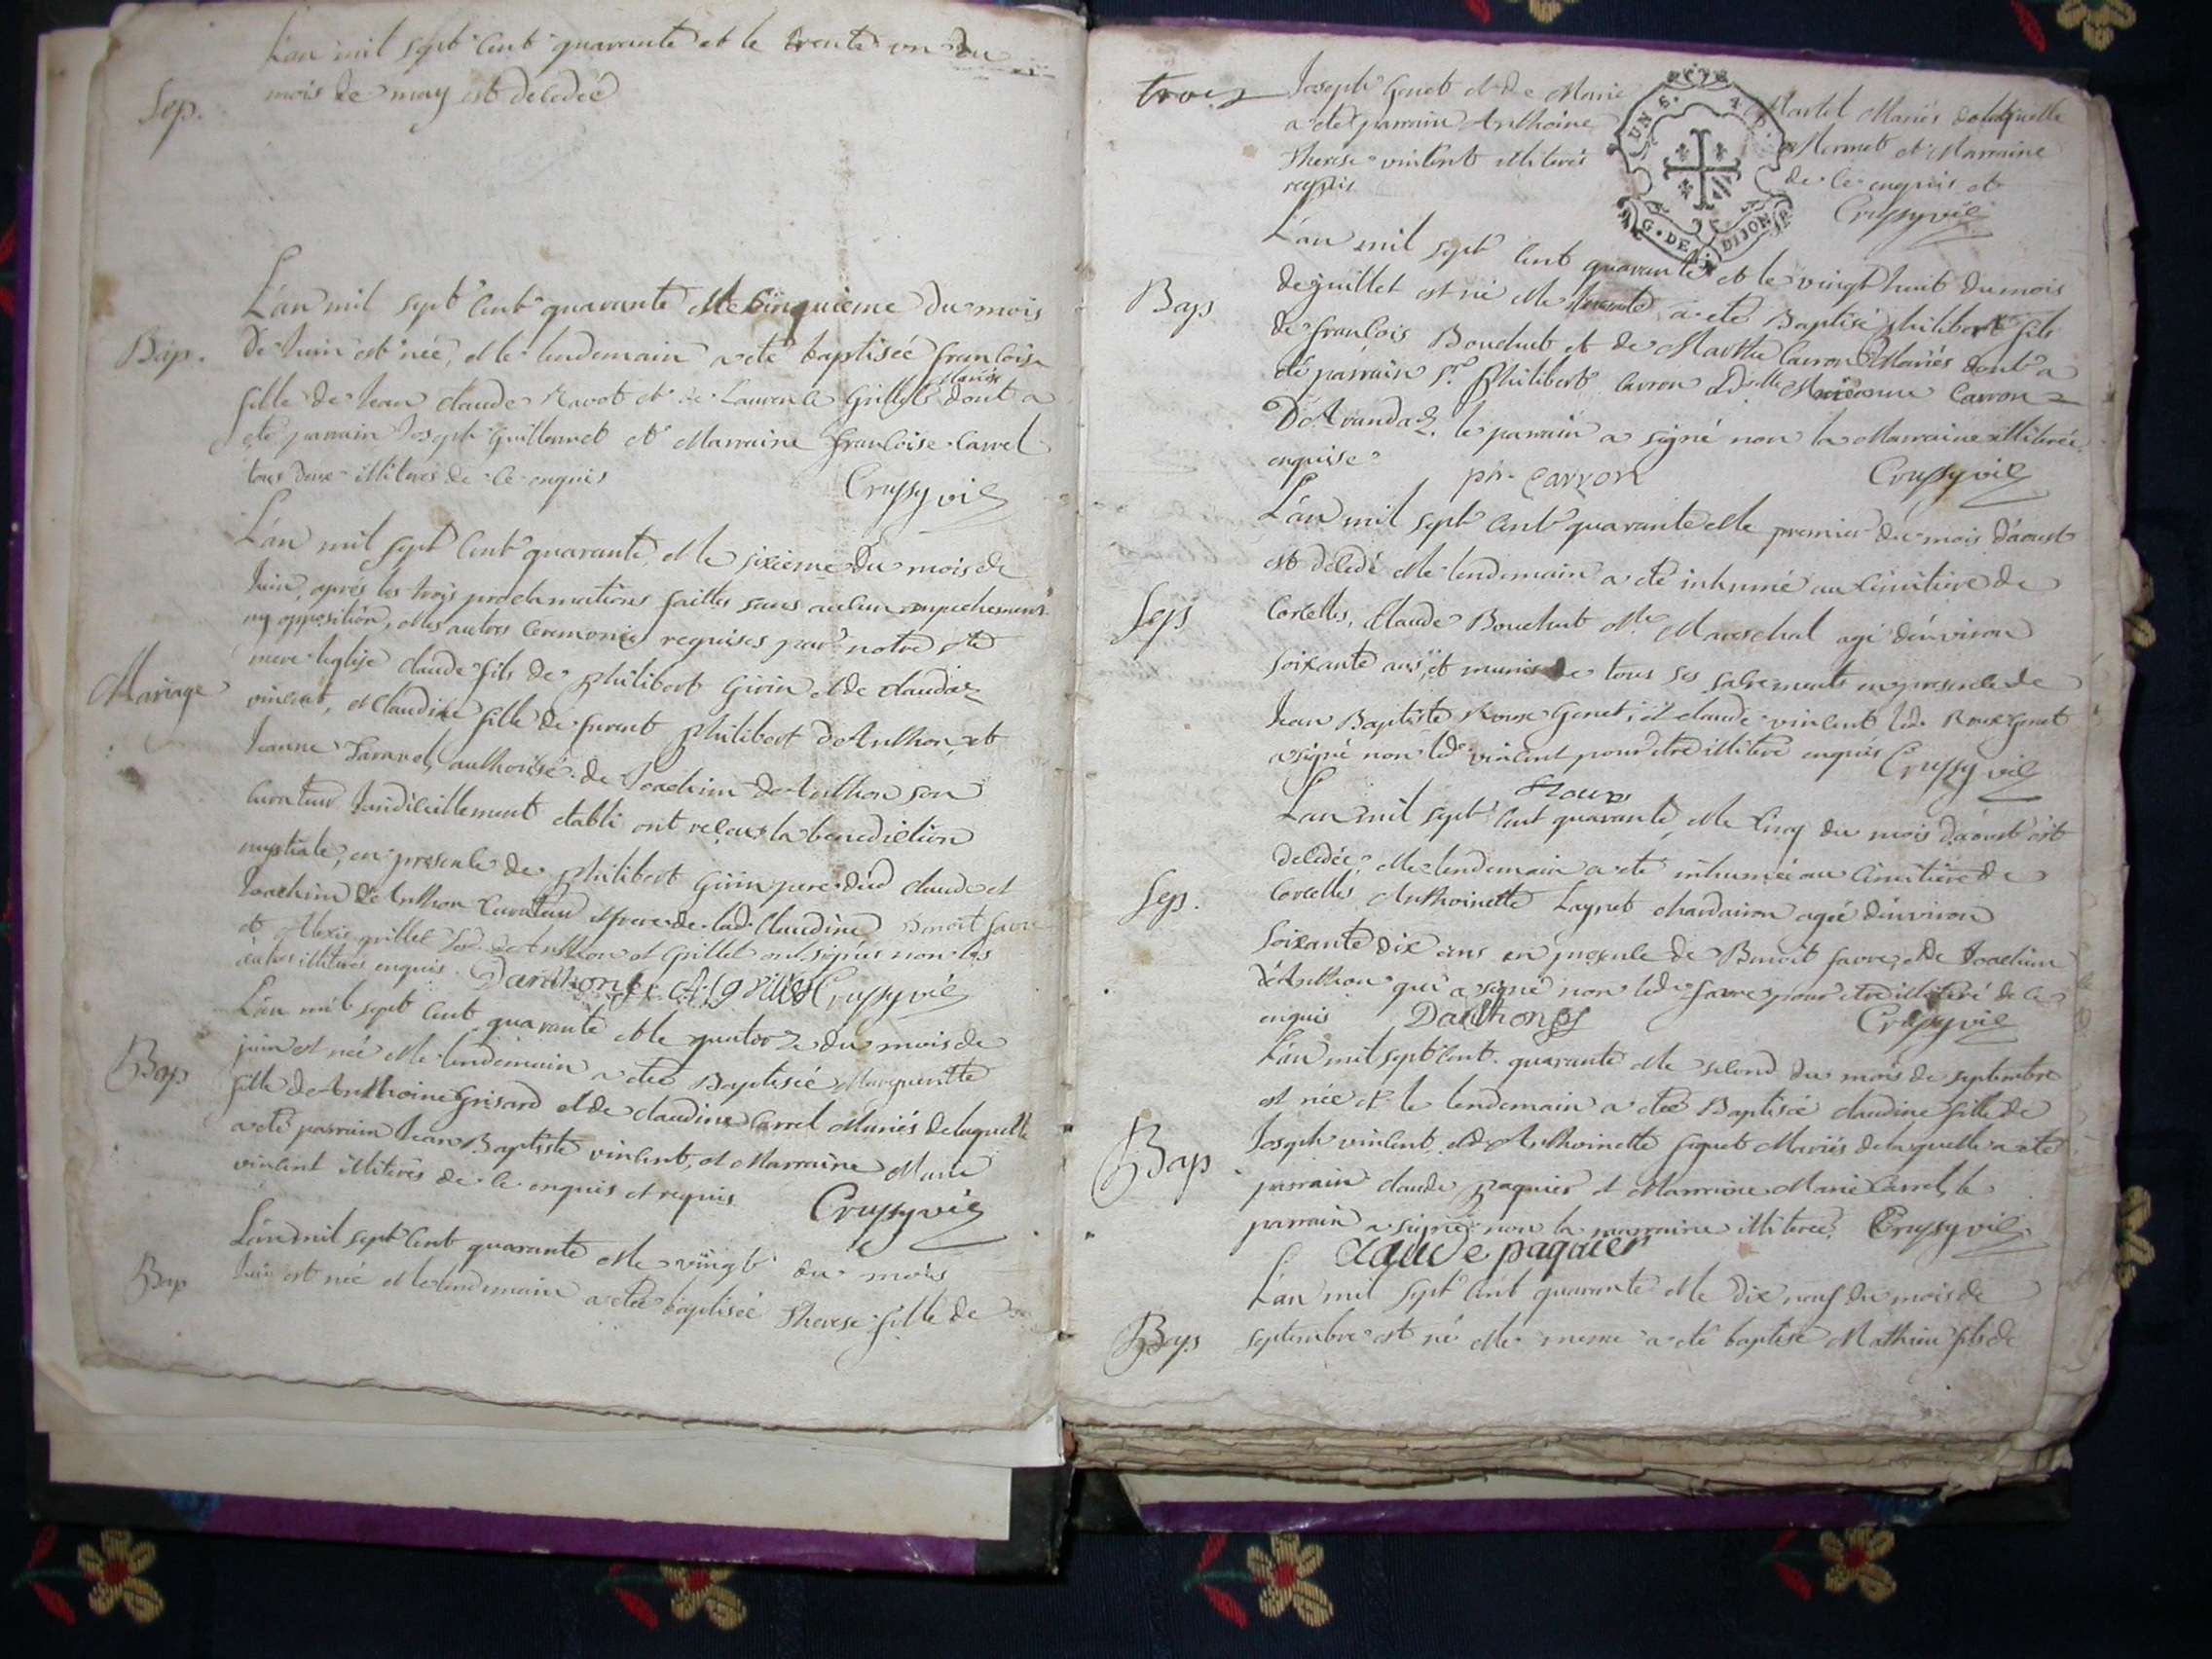 L'an mil sept cent quarante et le trente un du
Sep. mois de may est decedée
L'an mil sept cent quarante et le cinquieme du mois
Bap. de Juin est née, et le lendemain a eté baptiseé francoise
fille de Jean claude Ravot et de Laurence Grillet Mariés dont a
eté parrain Joseph Guillermet et Marraine francoise Carrel
tous deux illiterés de ce enquis Crussy vic
L'an mil sept cent quarante, et le sixieme du mois de
Juin, aprés les trois proclamations faittes sans aucun empechement
ny opposition, et les autres Ceremonies requises par notre ste
mere leglise claude fils de philibert Girin et de claudaz
Mariage vincent, et Claudine fille de furent philibert D'Anthon, et
Jeanne Savarel, authorisé de Joachim D'Anthon son
Curateur Juridicillement etabli ont reçeus la benediction
nuptiale, en presence de philibert Girin pere dud claude et
Joachim D'Anthon Curateur et frere de lad. Claudine Benoit favre
et Alexis grillet led. D'Anthon et Grillet ont signés non les
autres illiterés enquis. Danthon A Grillet Crussy vic
L'an mil sept cent quarante et le quatorze du mois de
Bap juin est née et le lendemain a eteé Baptiseé Marguerite
fille de Anthoine Grisard et de claudine Carrel Mariés de laquelle
a eté parrain Jean Baptiste vincent, et Marraine Marie
vincent illiterés de ce enquis et requis Crussy vic
L'an mil sept cent quarante et le vingt du mois
Bap Juin est née et le lendemain a eteé baptiseé Therese fille de
trois Joseph Genet et de Marie Martel Mariés de laquelle
a eté parrain Anthoine Mermet et Marraine
Therese vincent illiterés de ce enquis et
requis Crussy vic
UNS.
G. DE DIJON
L'an mil sept cent quarante et le vingt huit du mois
Bap de juillet est né et le a eté Baptisé philibert fils
de francois Bouchut et de Marthe Carron Mariés dont a
eté parrain Sr. Philibert Carron et D.elle Marianne Carron
D'Arandaz. le parrain a signé non la Marraine illitereé
enquise ph. carron Crussy vic
L'an mil sept cent quarante et le premier du mois d'aoust
est decedé et le lendemain a eté inhumé au Cimitiere de
Sep Corcelles, Claude Bouchut Me. Mareschal agé d'environ
soixante ans, et munis de tous ses sacrements en presence de
Jean Baptiste Roux Genet, et claude vincent, led. Roux Genet
a signé non led vincent pour etre illiteré enquis Crussy vic
Roux
L'an mil sept cent quarante, et le cinq du mois d'aoust est
decedée, et le lendemain a eté inhumée au Cimitiere de
Sep. Corcelles Anthoinette Laynet chardairon ageé d'environ
soixante dix ans en presence de Benoit favre, et de Joachim
d'Anthon qui a signé non led. favre pour etre illiteré de ce
enquis Danthon Crussy vic
L'an mil sept cent quarante et le second du mois de septembre
est née et le lendemain a eteé Baptiseé claudine fille de
Bap Joseph vincent et d'Anthoinette figuet Mariés de laquelle a eté
parrain claude paquier et Marraine Marie Carrel, le
parrain a signé non la marraine illitereé. Crussy vic
claude paquier
L'an mil sept cent quarante et le dix neuf du mois de
Bap septembre est né et le meme a eté baptisé Mathieu fils de